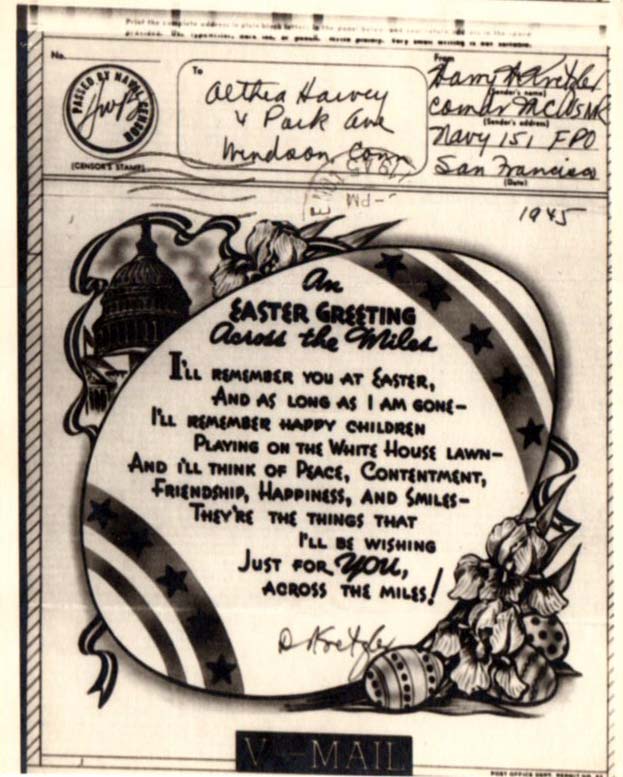 Print the complete address in plain block letters in the panel below, and your return address in the space
provided. Use typewriter, dark ink, or pencil. Write plainly. Very small writing is not suitable.
No.
PASSED BY NAVAL CENSOR
(CENSOR'S STAMP)
To
Althea Harvey
4 Park Ave
Windsor, Conn
From
Harry A Kretzler
(Sender's name)
(Sender's address)
Navy 151 FPO
San Francisco
(Date)
1945
1945
-PM
An
EASTER GREETING
Across the Miles
I'LL REMEMBER YOU AT EASTER,
AND AS LONG AS I AM GONE—
I'LL REMEMBER HAPPY CHILDREN
PLAYING ON THE WHITE HOUSE LAWN—
AND I'LL THINK OF PEACE, CONTENTMENT,
FRIENDSHIP, HAPPINESS, AND SMILES—
THEY'RE THE THINGS THAT
I'LL BE WISHING
JUST FOR YOU,
ACROSS THE MILES!
D Kretzler
V-MAIL
POST OFFICE DEPT. PERMIT NO.